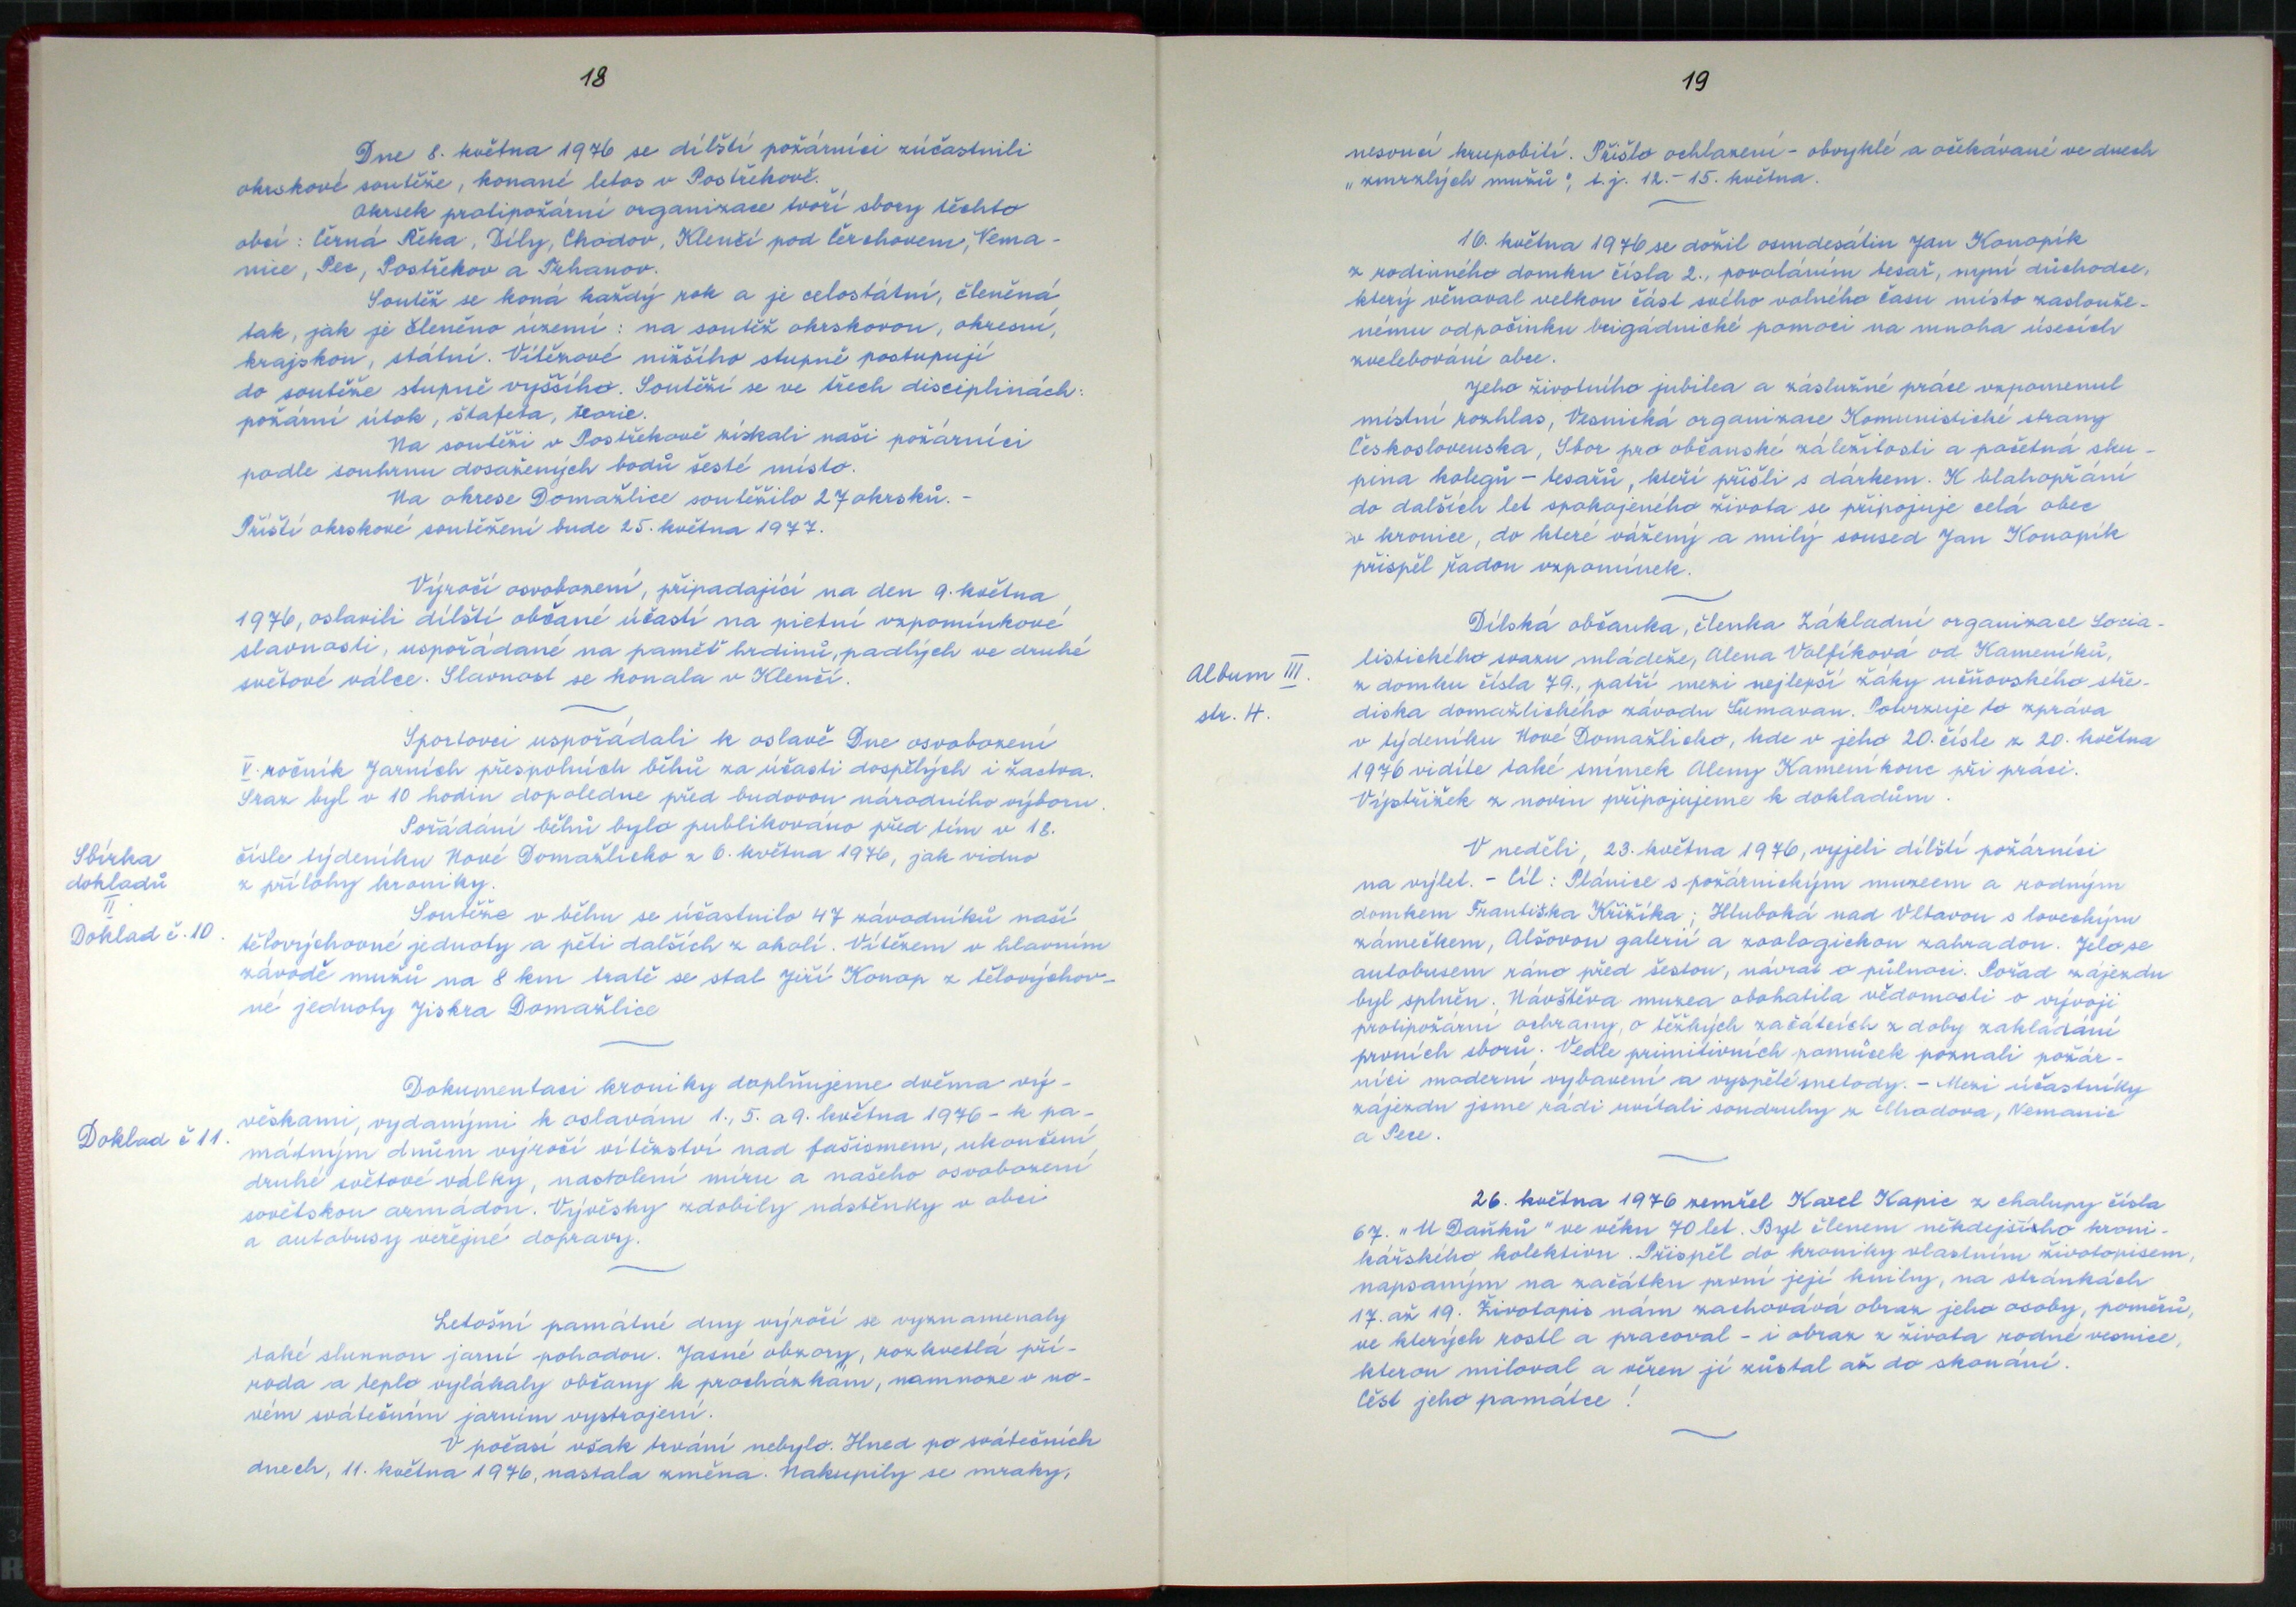 18
Dne 8. května 1976 se dílští požárníci zúčastnili
okrskové soutěže, konané letos v Postřekově.
Okrsek protipožární organizace tvoří sbory těchto
obcí: Černá Řeka, Díly, Chodov, Klenčí pod Čerchovem, Nema-
nice, Pec, Postřekov a Trhanov.
Soutěž se koná každý rok a je celostátní, členěná
tak, jak je členěno území: na soutěž okrskovou, okresní,
krajskou, státní. Vítězové nižšího stupně postupují
do soutěže stupně vyššího. Soutěží se ve třech disciplinách:
požární útok, štafeta, teorie.
Na soutěži v Postřekově získali naši požárníci
podle souhrnu dosažených bodů šesté místo.
Na okrese Domažlice soutěžilo 27 okrsků. -
Příští okrskové soutěžení bude 25. května 1977.
Výročí osvobození, připadající na den 9. května
1976, oslavili dílští občané účastí na pietní vzpomínkové
slavnosti, uspořádané na paměť hrdinů, padlých ve druhé
světové válce. Slavnost se konala v Klenčí.
Sportovci uspořádali k oslavě Dne osvobození
V. ročník Jarních přespolních běhů za účasti dospělých i žactva.
Sraz byl v 10 hodin dopoledne před budovou národního výboru.
Pořádání běhů bylo publikováno před tím v 18.
Sbírka
dokladů
II.
Doklad č. 10.
čísle týdeníku Nové Domažlicko z 6. května 1976, jak vidno
z přílohy kroniky.
Soutěže v běhu se účastnilo 47 závodníků naší
tělovýchovné jednoty a pěti dalších z okolí. Vítězem v hlavním
závodě mužů na 8 km tratě se stal Jiří Konop z tělovýchov-
né jednoty Jiskra Domažlice
Dokumentaci kroniky doplňujeme dvěma vý-
věškami, vydanými k oslavám 1., 5. a 9. května 1976 - k pa-
Doklad č 11.
mátným dnům výročí vítězství nad fašismem, ukončení
druhé světové války, nastolení míru a našeho osvobození
sovětskou armádou. Vývěsky zdobily nástěnky v obci
a autobusy veřejné dopravy.
Letošní památné dny výročí se vyznamenaly
také slunnou jarní pohodou. Jasné obzory, rozkvetlá pří-
roda a teplo vylákaly občany k procházkám, namnoze v no-
vém svátečním jarním vystrojení.
V počasí však trvání nebylo. Hned po svátečních
dnech, 11. května 1976, nastala změna. Nakupily se mraky,
19
nesoucí krupobití. Přišlo ochlazení - obvyklé a očekávané ve dnech
„zmrzlých mužů", t.j. 12.-15. května.
16. května 1976 se dožil osmdesátin Jan Konopík
z rodinného domku čísla 2., povoláním tesař, nyní důchodce,
který věnoval velkou část svého volného času místo zaslouže-
nému odpočinku brigádnické pomoci na mnoha úsecích
zvelebování obce.
Jeho životního jubilea a záslužné práce vzpomenul
místní rozhlas, Vesnická organizace Komunistické strany
Československa, Sbor pro občanské záležitosti a početná sku-
pina kolegů - tesařů, kteří přišli s dárkem. K blahopřání
do dalších let spokojeného života se připojuje celá obec
v kronice, do které vážený a milý soused Jan Konopík
přispěl řadou vzpomínek.
Dílská občanka, členka Základní organizace Socia-
listického svazu mládeže, Alena Volfíková od Kameníků,
Album III.
str. 4.
z domku čísla 79., patří mezi nejlepší žáky učňovského stře-
diska domažlického závodu Šumavan. Potvrzuje to zpráva
v týdeníku Nové Domažlicko, kde v jeho 20. čísle z 20. května
1976 vidíte také snímek Aleny Kameníkouc při práci.
Výstřižek z novin připojujeme k dokladům.
V neděli, 23. května 1976, vyjeli dílští požárníci
na výlet. - Cíl: Plánice s požárnickým muzeem a rodným
domkem Františka Křižíka; Hluboká nad Vltavou s loveckým
zámečkem, Alšovou galerií a zoologickou zahradou. Jelo se
autobusem ráno před šestou, návrat o půlnoci. Pořad zájezdu
byl splněn. Návštěva muzea obohatila vědomosti o vývoji
protipožární ochrany, o těžkých začátcích z doby zakládání
prvních sborů. Vedle primitivních pomůcek poznali požár-
níci moderní vybavení a vyspělé metody. - Mezi účastníky
zájezdu jsme rádi uvítali soudruhy z Chodova, Nemanic
a Pece.
26. května 1976 zemřel Karel Kapic z chalupy čísla
67. „U Daňků" ve věku 70 let. Byl členem někdejšího kroni-
kářského kolektivu. Přispěl do kroniky vlastním životopisem,
napsaným na začátku první její knihy, na stránkách
17. až 19. Životopis nám zachovává obraz jeho osoby, poměrů,
ve kterých rostl a pracoval - i obraz z života rodné vesnice,
kterou miloval a věren jí zůstal až do skonání.
Čest jeho památce!